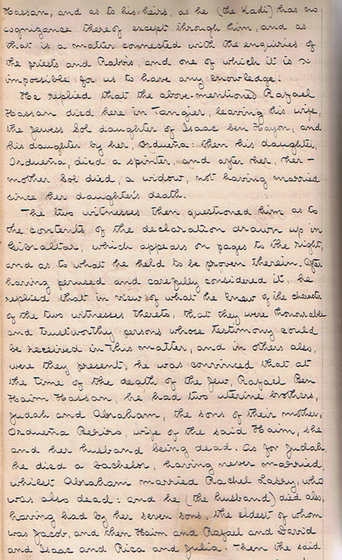 Hassan, and as to his heirs, as he (the Kadi) has no
cognizance thereof except through him, and as
that is a matter connected with the enquiries of
the priests and Rabbis, and one of which it is
impossible for us to have any knowledge.
He replied that the above-mentioned Rafael
Hassan died here in Tangier, leaving his wife,
the Jewess Sol daughter of Isaac ben Hayon, and
his daughter by her, Orduena: then his daughter,
Orduena, died a spinster, and after her, her
mother Sol died, a widow, not having married
since her daughter's death.
The two witnesses then questioned him as to
the contents of the declaration drawn up in
Gibraltar, which appears on pages to the right,
and as to what he held to be proven therein. After
having perused and carefully considered it, he
replied that in view of what he knew of the character
of the two witnesses thereto, that they were honourable
and trustworthy persons whose testimony could
be received in this matter, and in others also,
were they present, he was convinced that at
the time of the death of the Jew, Rafael Ben
Haim Hassan, he had two uterine brothers,
Judah and Abraham, the sons of their mother,
Orduena, wife of the said Haim, she
and her husband being dead. As for Judah,
he died a bachelor, having never married,
whilst Abraham married Rachel Lasry, who
was also dead: and he (the husband) died also,
having had by her seven sons, the eldest of whom
was Jacob, and then Haim and Rafael and David
and Isaac and Rica and Julia. Then the said